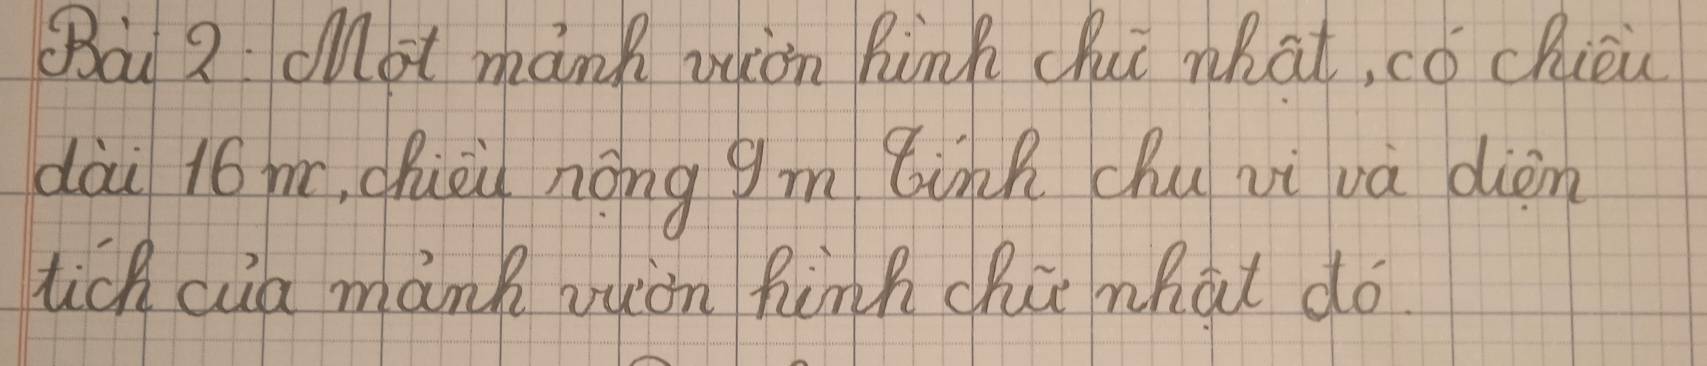 Bài 2: Một mảnh vườn hình chữ nhật, có chiều
dài 16 m, chiều nộng 9 m Tính chu vi và diện
tích của mảnh vườn hình chữ nhật đó.